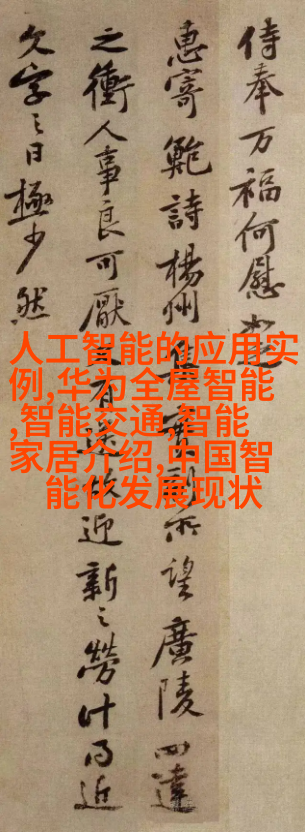 侍奉万福何慰
惠寄鲍詩楊州集實副所望廣陵四達
之衝人事良可厭又有送故迎新之勞計日近
文字之日極少然
人工智能的应用实
例,华为全屋智能
,智能交通,智能
家居介绍,中国智
能化发展现状